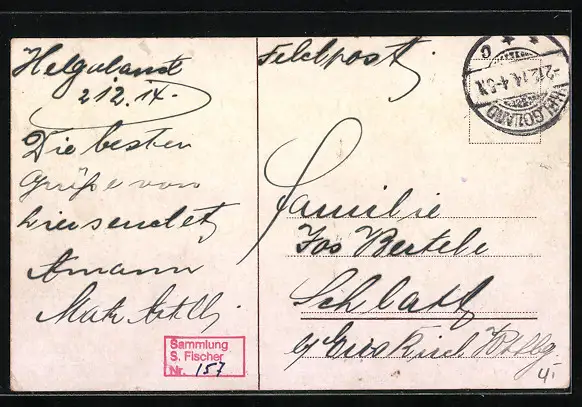 Helgoland
2.12.14.
Die besten
Grüße von
hier sendet
Amann
Matr. Artll.
Sammlung
S. Fischer
Nr. 157
Feldpost
2.12.14.
HELGOLAND
Familie
Jos Bertele
Schlatt
Kirch Wttbg.